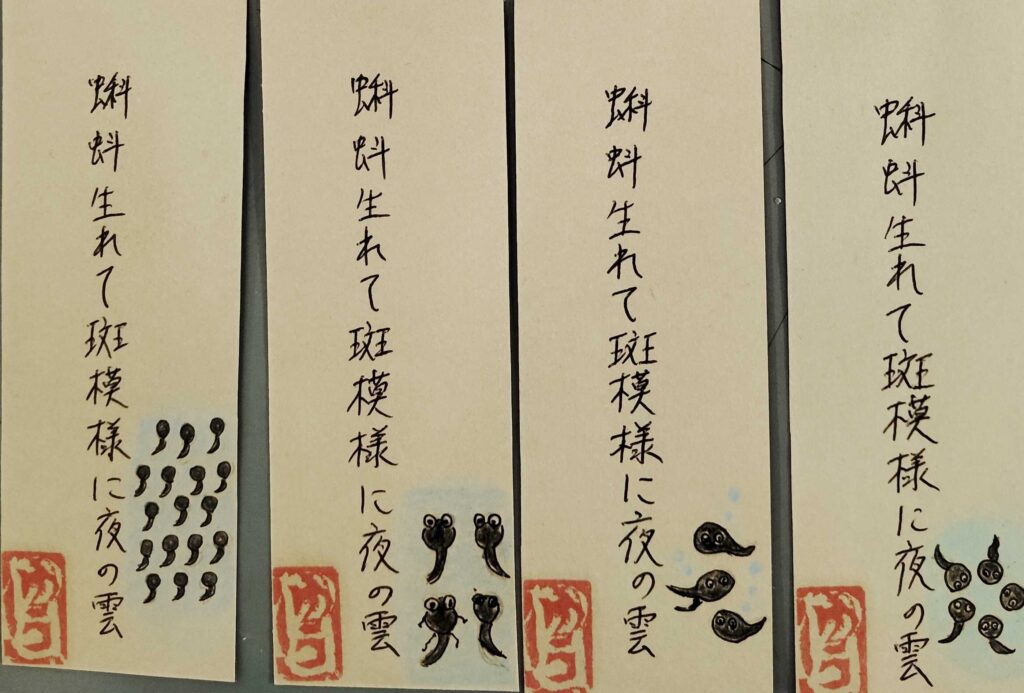 蝌蚪生れて斑模様に夜の雲
蝌蚪生れて斑模様に夜の雲
蝌蚪生れて斑模様に夜の雲
蝌蚪生れて斑模様に夜の雲